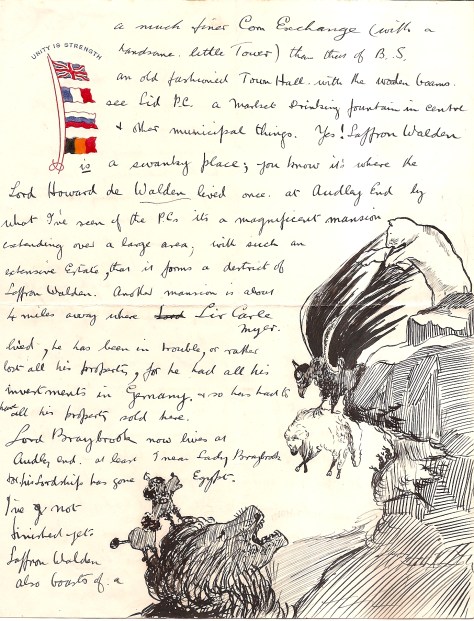 UNITY IS STRENGTH
a much finer Corn Exchange (with a
handsome little Tower) than that of B.S.
an old fashioned Town Hall. with the wooden beams.
see Sid P.C. a market drinking fountain in centre
& other municipal things. Yes! Saffron Walden
is a swanky place; you know it's where the
Lord Howard de Walden lived once. at Audley End by
what I've seen of the P.Cs it's a magnificent mansion
extending over a large area; with such an
extensive Estate, that it forms a district of
Saffron Walden. Another mansion is about
4 miles away where Lord Sir Carle
Myer.
lived, he has been in trouble, or rather
lost all his property, for he had all his
investments in Germany. & so has had to
have all his property sold here.
Lord Braybrook now lives at
Audley end. at least I mean Lady Braybrook
for his Lordship has gone Egypt.
I've not
finished yet.
Saffron Walden
also boasts of a